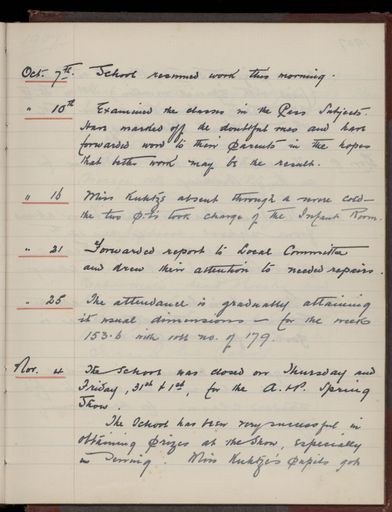 Oct. 7th. School resumed work this morning.
" 10th Examined the classes in the Pass Subjects.
Have marked off the doubtful ones and have
forwarded word to their parents in the hopes
that better work may be the result.
" 16 Miss Kuhtze absent through a severe cold –
the two P.Ts took charge of the Infant Room.
" 21 Forwarded report to Local Committee
and drew their attention to needed repairs.
" 25 The attendance is gradually attaining
it usual dimensions – for the week
153.6 with roll no. of 179.
Nov. 4 The School was closed on Thursday and
Friday, 31st & 1st, for the A. & P. Spring
Show.
The School has been very successful in
obtaining prizes at the Show, especially
in Sewing. Miss Kuhtze's pupils got